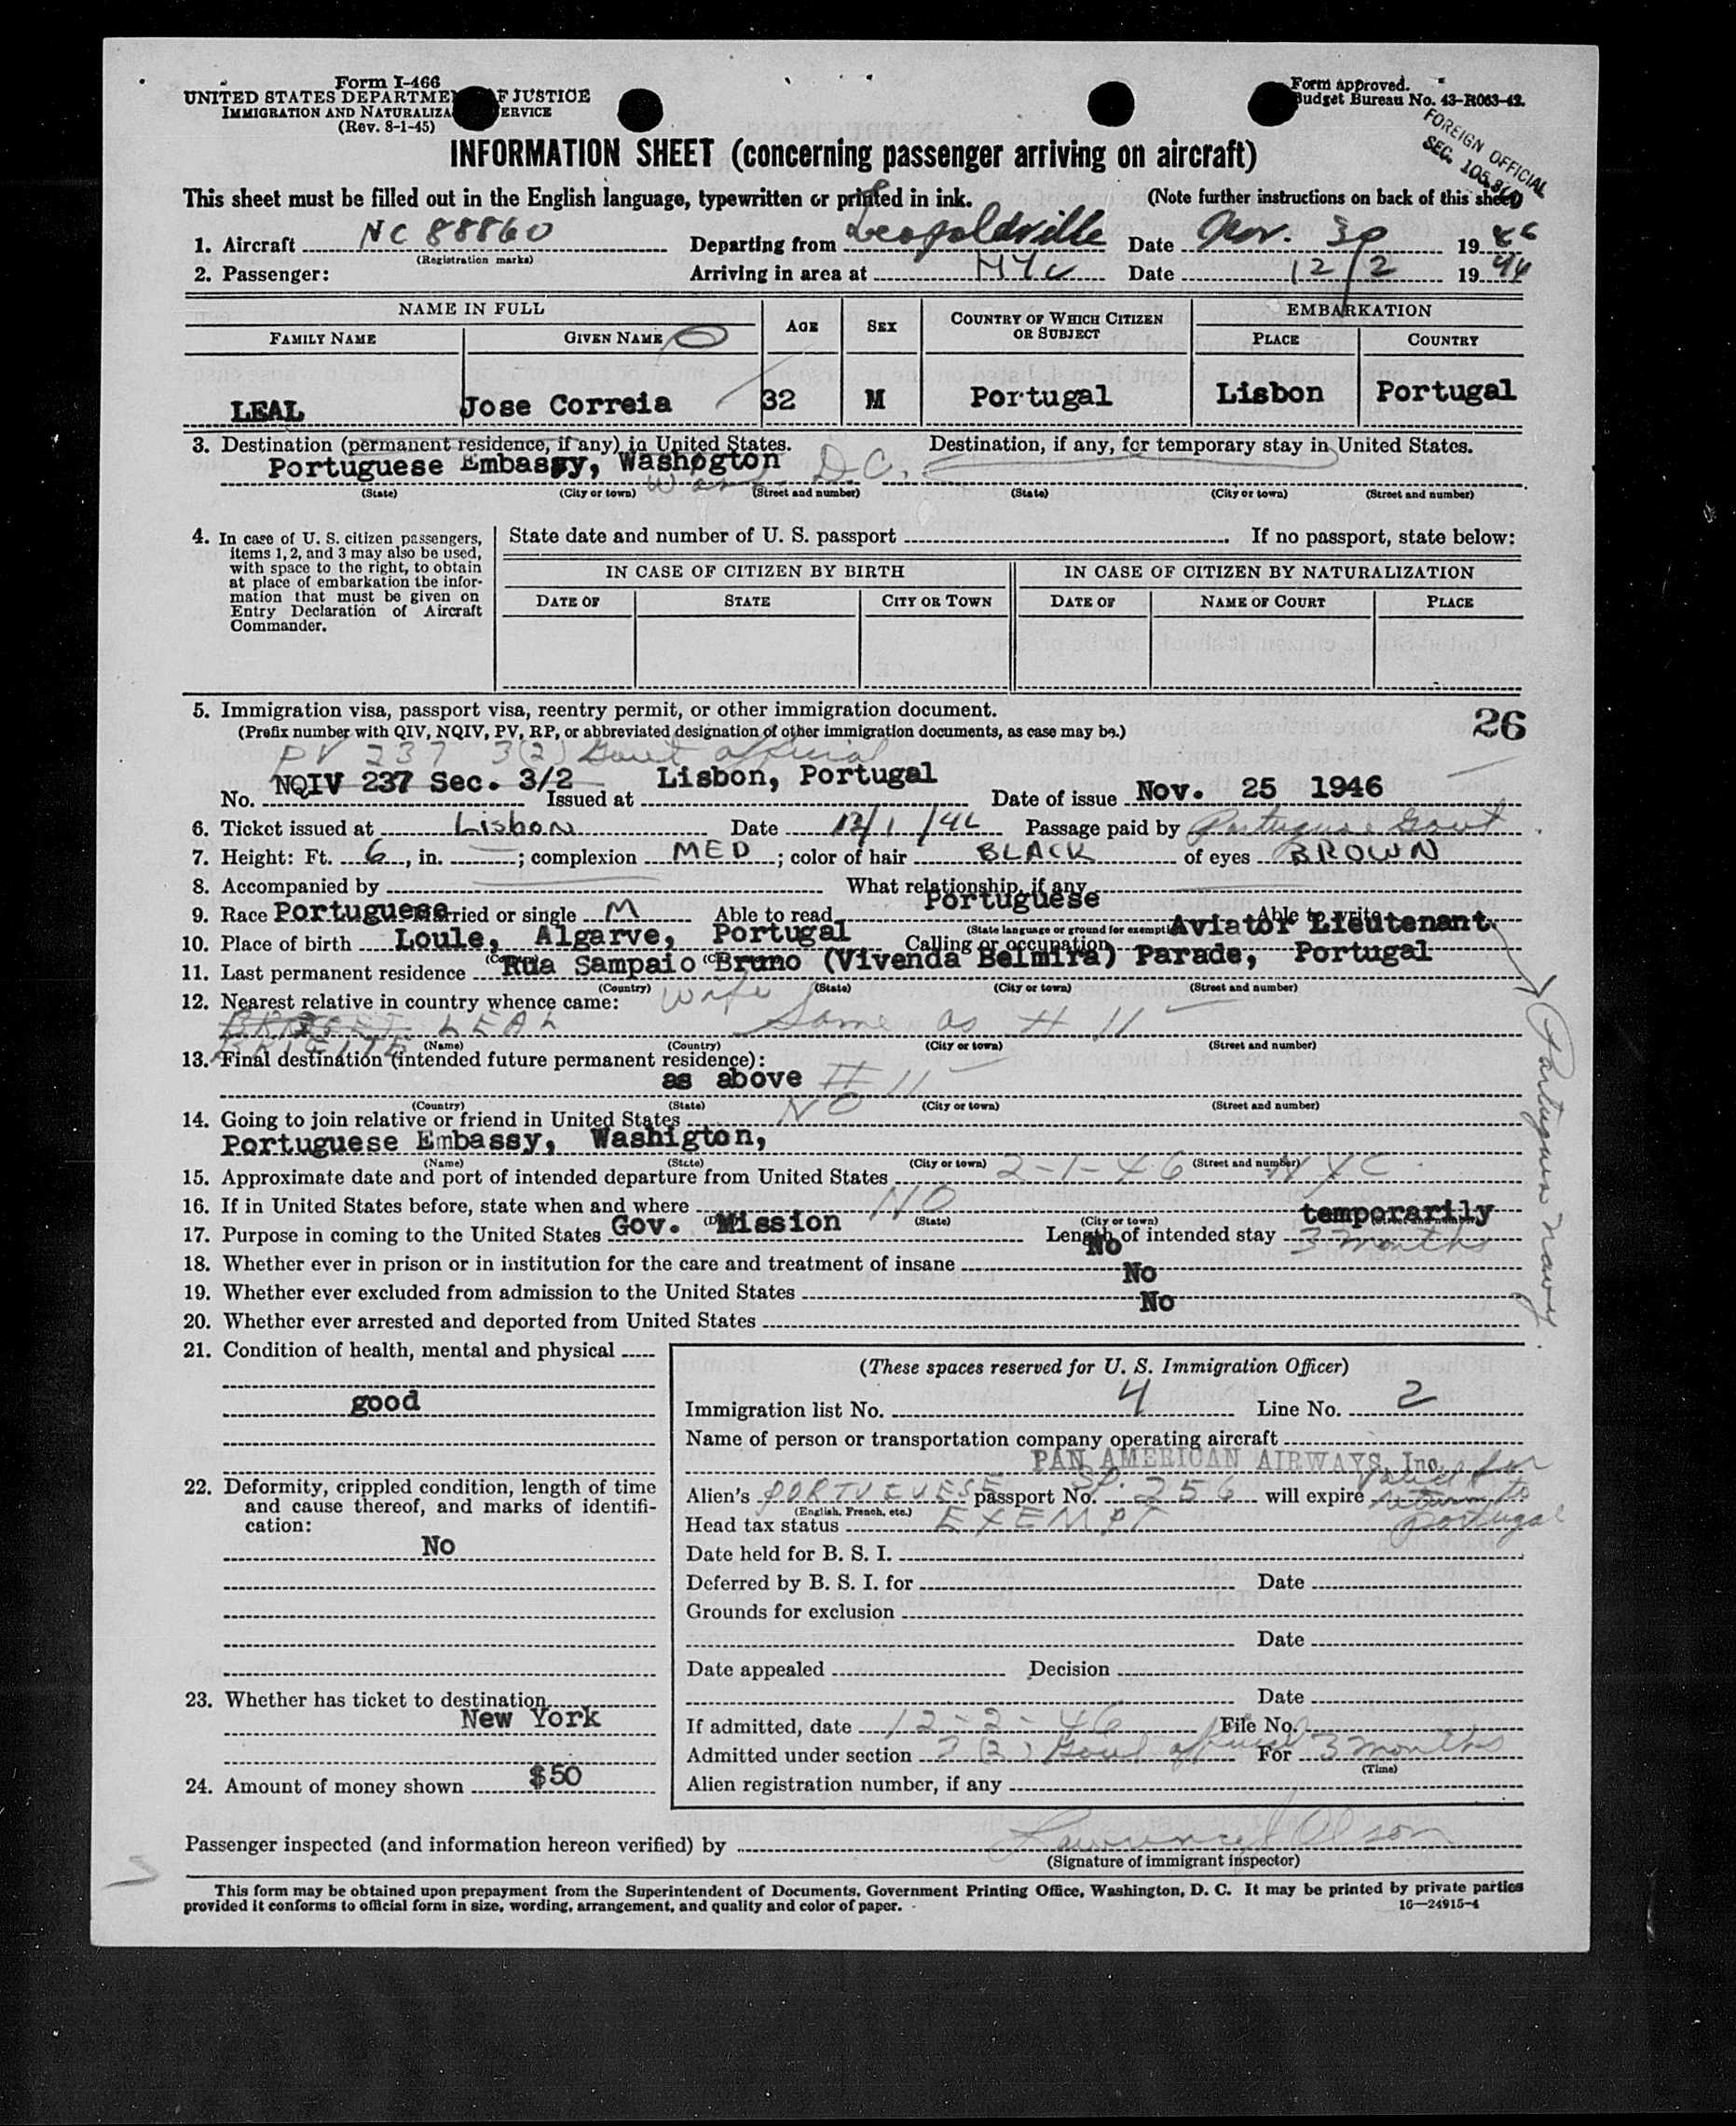 Form I-466
UNITED STATES DEPARTME F JUSTICE
IMMIGRATION AND NATURALIZA ERVICE
(Rev. 8-1-45)
Form approved.
Budget Bureau No. 43-R063-42.
FOREIGN OFFICIAL
SEC.
INFORMATION SHEET (concerning passenger arriving on aircraft)
This sheet must be filled out in the English language, typewritten or printed in ink. (Note further instructions on back of this sheet)
1. Aircraft NC 88860 Departing from Leopoldville Date Nov. 30 1946
(Registration marks)
2. Passenger: Arriving in area at NYC Date 12/2 1946
NAME IN FULL AGE SEX COUNTRY OF WHICH CITIZEN OR SUBJECT EMBARKATION
FAMILY NAME GIVEN NAME PLACE COUNTRY
LEAL Jose Correia 32 M Portugal Lisbon Portugal
3. Destination (permanent residence, if any) in United States. Destination, if any, for temporary stay in United States.
Portuguese Embassy, Washogton D.C.
Wash.
(State) (City or town) (Street and number) (State) (City or town) (Street and number)
4. In case of U. S. citizen passengers, items 1, 2, and 3 may also be used, with space to the right, to obtain at place of embarkation the information that must be given on Entry Declaration of Aircraft Commander.
State date and number of U. S. passport If no passport, state below:
IN CASE OF CITIZEN BY BIRTH IN CASE OF CITIZEN BY NATURALIZATION
DATE OF STATE CITY OR TOWN DATE OF NAME OF COURT PLACE
5. Immigration visa, passport visa, reentry permit, or other immigration document. 26
(Prefix number with QIV, NQIV, PV, RP, or abbreviated designation of other immigration documents, as case may be.)
PV 237 3(2) Gov't official
No. NQIV 237 Sec. 3/2 Issued at Lisbon, Portugal Date of issue Nov. 25 1946
6. Ticket issued at Lisbon Date Passage paid by Portuguese Govt
7. Height: Ft. 6, in. ; complexion MED ; color of hair BLACK of eyes BROWN
8. Accompanied by What relationship, if any
9. Race Portuguese Married or single M Able to read Portuguese Able to write
(State language or ground for exempti
10. Place of birth Loule, Algarve, Portugal Calling or occupation Aviator Lieutenant
Portuguese Navy.
11. Last permanent residence Rua Sampaio Bruno (Vivenda Belmira) Parade, Portugal
(Country) (State) (City or town) (Street and number)
12. Nearest relative in country whence came: Wife
LEAL Same as # 11
BRIGITE
(Name) (Country) (City or town) (Street and number)
13. Final destination (intended future permanent residence):
as above # 11
(Country) (State) (City or town) (Street and number)
14. Going to join relative or friend in United States NO
Portuguese Embassy, Washigton,
(Name) (State) (City or town) (Street and number)
15. Approximate date and port of intended departure from United States 2-1-46 NYC.
16. If in United States before, state when and where NO
(State) (City or town)
17. Purpose in coming to the United States Gov. Mission Length of intended stay temporarily
3 months
18. Whether ever in prison or in institution for the care and treatment of insane No
19. Whether ever excluded from admission to the United States No
20. Whether ever arrested and deported from United States No
21. Condition of health, mental and physical
good
22. Deformity, crippled condition, length of time and cause thereof, and marks of identification:
No
23. Whether has ticket to destination
New York
24. Amount of money shown $50
(These spaces reserved for U. S. Immigration Officer)
Immigration list No. 4 Line No. 2
Name of person or transportation company operating aircraft
PAN AMERICAN AIRWAYS, Inc.
Alien's PORTUGUESE passport No. SP. 256 will expire valid for return to Portugal
(English, French, etc.)
Head tax status EXEMPT
Date held for B. S. I.
Deferred by B. S. I. for Date
Grounds for exclusion
Date
Date appealed Decision
Date
If admitted, date 12-2-46 File No.
Admitted under section 3(2) Govt official For 3 months
(Time)
Alien registration number, if any
Passenger inspected (and information hereon verified) by Lawrence J Olson
(Signature of immigrant inspector)
This form may be obtained upon prepayment from the Superintendent of Documents, Government Printing Office, Washington, D. C. It may be printed by private parties
provided it conforms to official form in size, wording, arrangement, and quality and color of paper. 16—24915-4